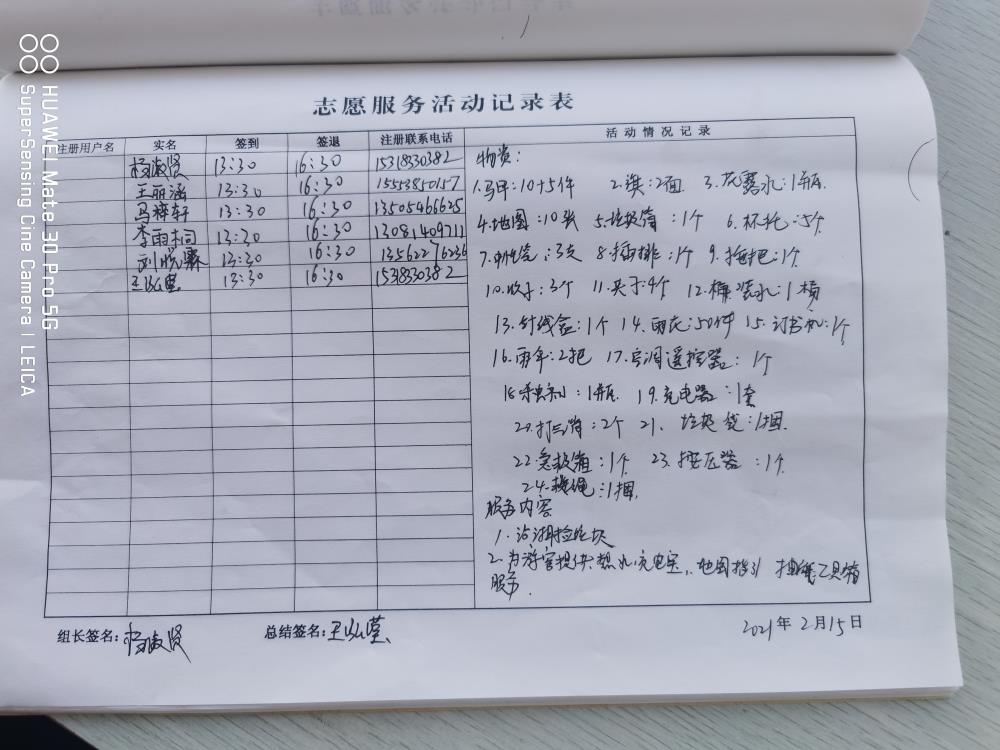 志愿服务活动记录表
注册用户名 实名 签到 签退 注册联系电话 活动情况记录
杨淑贤 13:30 16:30 15318330382
王丽涵 13:30 16:30 15553850157
马梓轩 13:30 16:30 13505466625
李雨桐 13:30 16:30 13081409711
刘悦霖 13:30 16:30 13562276236
13:30 16:30 15318330382
物资:
1.马甲:10+5件 2.旗:2面 3.花露水:1瓶
4.地图:10张 5.垃圾筒:1个 6.杯托:5个
7.中性笔:3支 8.插排:1个 9.拖把:1个
10. :3个 11.夹子4个 12. 水:1桶
13.针线盒:1个 14.雨衣:50件 15.订书机:1个
16.雨伞:2把 17.空调遥控器:1个
18.杀虫剂:1瓶 19.充电器:1套
20.打气筒:2个 21.垃圾袋:1捆
22.急救箱:1个 23.按压器:1个
24. 绳:1捆
服务内容
1.沿湖捡垃圾
2.为游客提供热水,充电宝,地图指引 工具箱
服务.
组长签名:杨淑贤 总结签名:王
2021年2月15日
HUAWEI Mate 30 Pro 5G
SuperSensing Cine Camera | LEICA